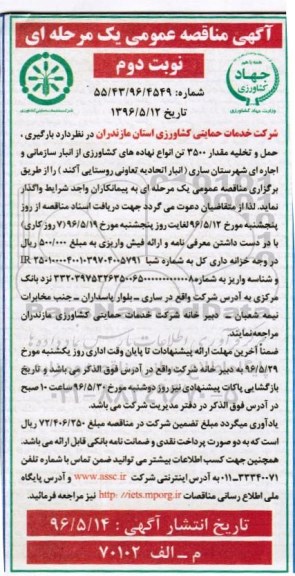 آگهی مناقصه عمومی یک مرحله ای
نوبت دوم
همت با هم
جهاد
کشاورزی
وزارت جهاد کشاورزی
شماره: ۵۵/۴۳/۹۶/۴۵۴۹
تاریخ ۱۳۹۶/۵/۱۲
شرکت خدمات حمایتی کشاورزی استان مازندران در نظردارد بارگیری ،
حمل و تخلیه مقدار ۳۵۰۰ تن انواع نهاده های کشاورزی از انبار سازمانی و
اجاره ای شهرستان ساری (انبار اتحادیه تعاونی روستایی آکند ) را از طریق
برگزاری مناقصه عمومی یک مرحله ای به پیمانکاران واجد شرایط واگذار
نماید. لذا از متقاضیان دعوت می گردد جهت دریافت اسناد مناقصه از روز
پنجشنبه مورخ ۹۶/۵/۱۲ لغایت روز پنجشنبه مورخ ۹۶/۵/۱۹ (۷ روز کاری)
با در دست داشتن معرفی نامه و ارائه فیش واریزی به مبلغ ۵۰۰/۰۰۰ ریال
در وجه خزانه داری کل به شماره شبا
و شناسه واریز به شماره نزد بانک
مرکزی به آدرس شرکت واقع در ساری ـ بلوار پاسداران ـ جنب مخابرات
نیمه شعبان ـ دبیر خانه شرکت خدمات حمایتی کشاورزی مازندران
مراجعه نمایند.
ضمناً آخرین مهلت ارائه پیشنهادات تا پایان وقت اداری روز یکشنبه مورخ
۹۶/۵/۲۹ به دبیر خانه شرکت واقع در آدرس فوق الذکر می باشد و تاریخ
بازگشایی پاکات پیشنهادی نیز روز دوشنبه مورخ ۹۶/۵/۳۰ ساعت ۱۰ صبح
در آدرس فوق الذکر در دفتر مدیریت شرکت می باشد.
یادآوری میگردد مبلغ تضمین شرکت در مناقصه مبلغ ۷۲/۴۰۶/۲۵۰ ریال
است که به دو صورت پرداخت نقدی و ضمانت نامه بانکی قابل ارائه می باشد.
همچنین جهت کسب اطلاعات بیشتر می توانید ضمن تماس با شماره تلفن
۳۳۳۴۰۰۷۱ـ۰۱۱ به آدرس اینترنتی شرکت www.assc.ir و آدرس پایگاه
ملی اطلاع رسانی مناقصات http://iets.mporg.ir نیز مراجعه فرمائید.
تاریخ انتشار آگهی : ۹۶/۵/۱۴
م ـ الف ۷۰۱۰۲